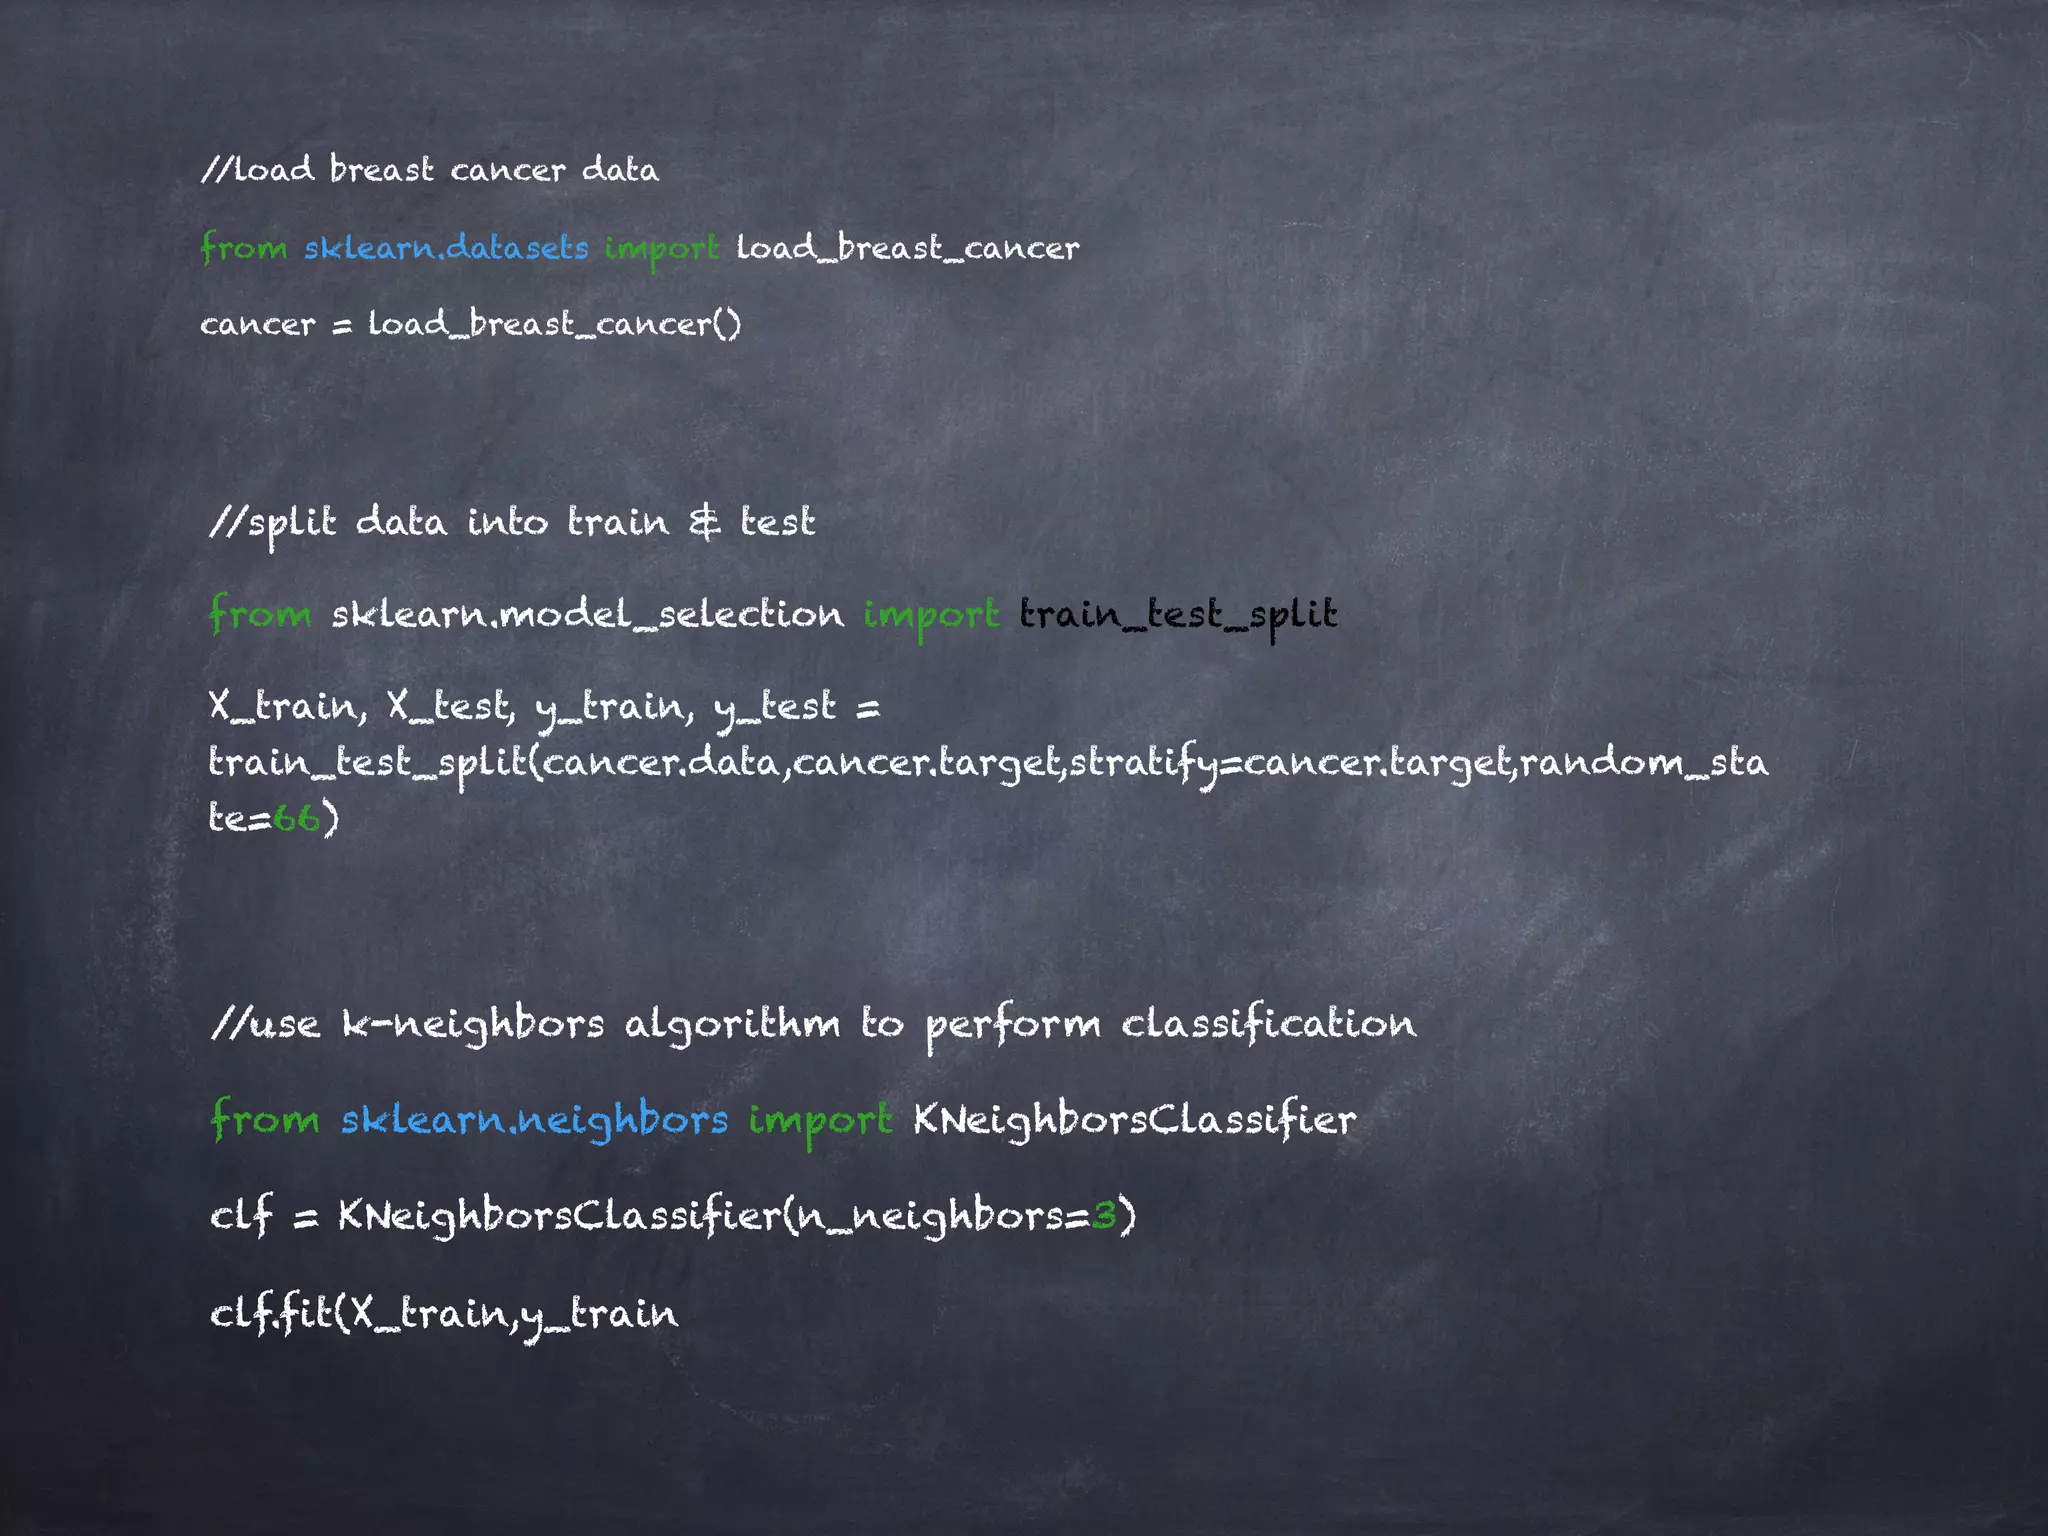 //load breast cancer data
from sklearn.datasets import load_breast_cancer
cancer = load_breast_cancer()
//split data into train & test
from sklearn.model_selection import train_test_split
X_train, X_test, y_train, y_test =
train_test_split(cancer.data,cancer.target,stratify=cancer.target,random_sta
te=66)
//use k-neighbors algorithm to perform classification
from sklearn.neighbors import KNeighborsClassifier
clf = KNeighborsClassifier(n_neighbors=3)
clf.fit(X_train,y_train